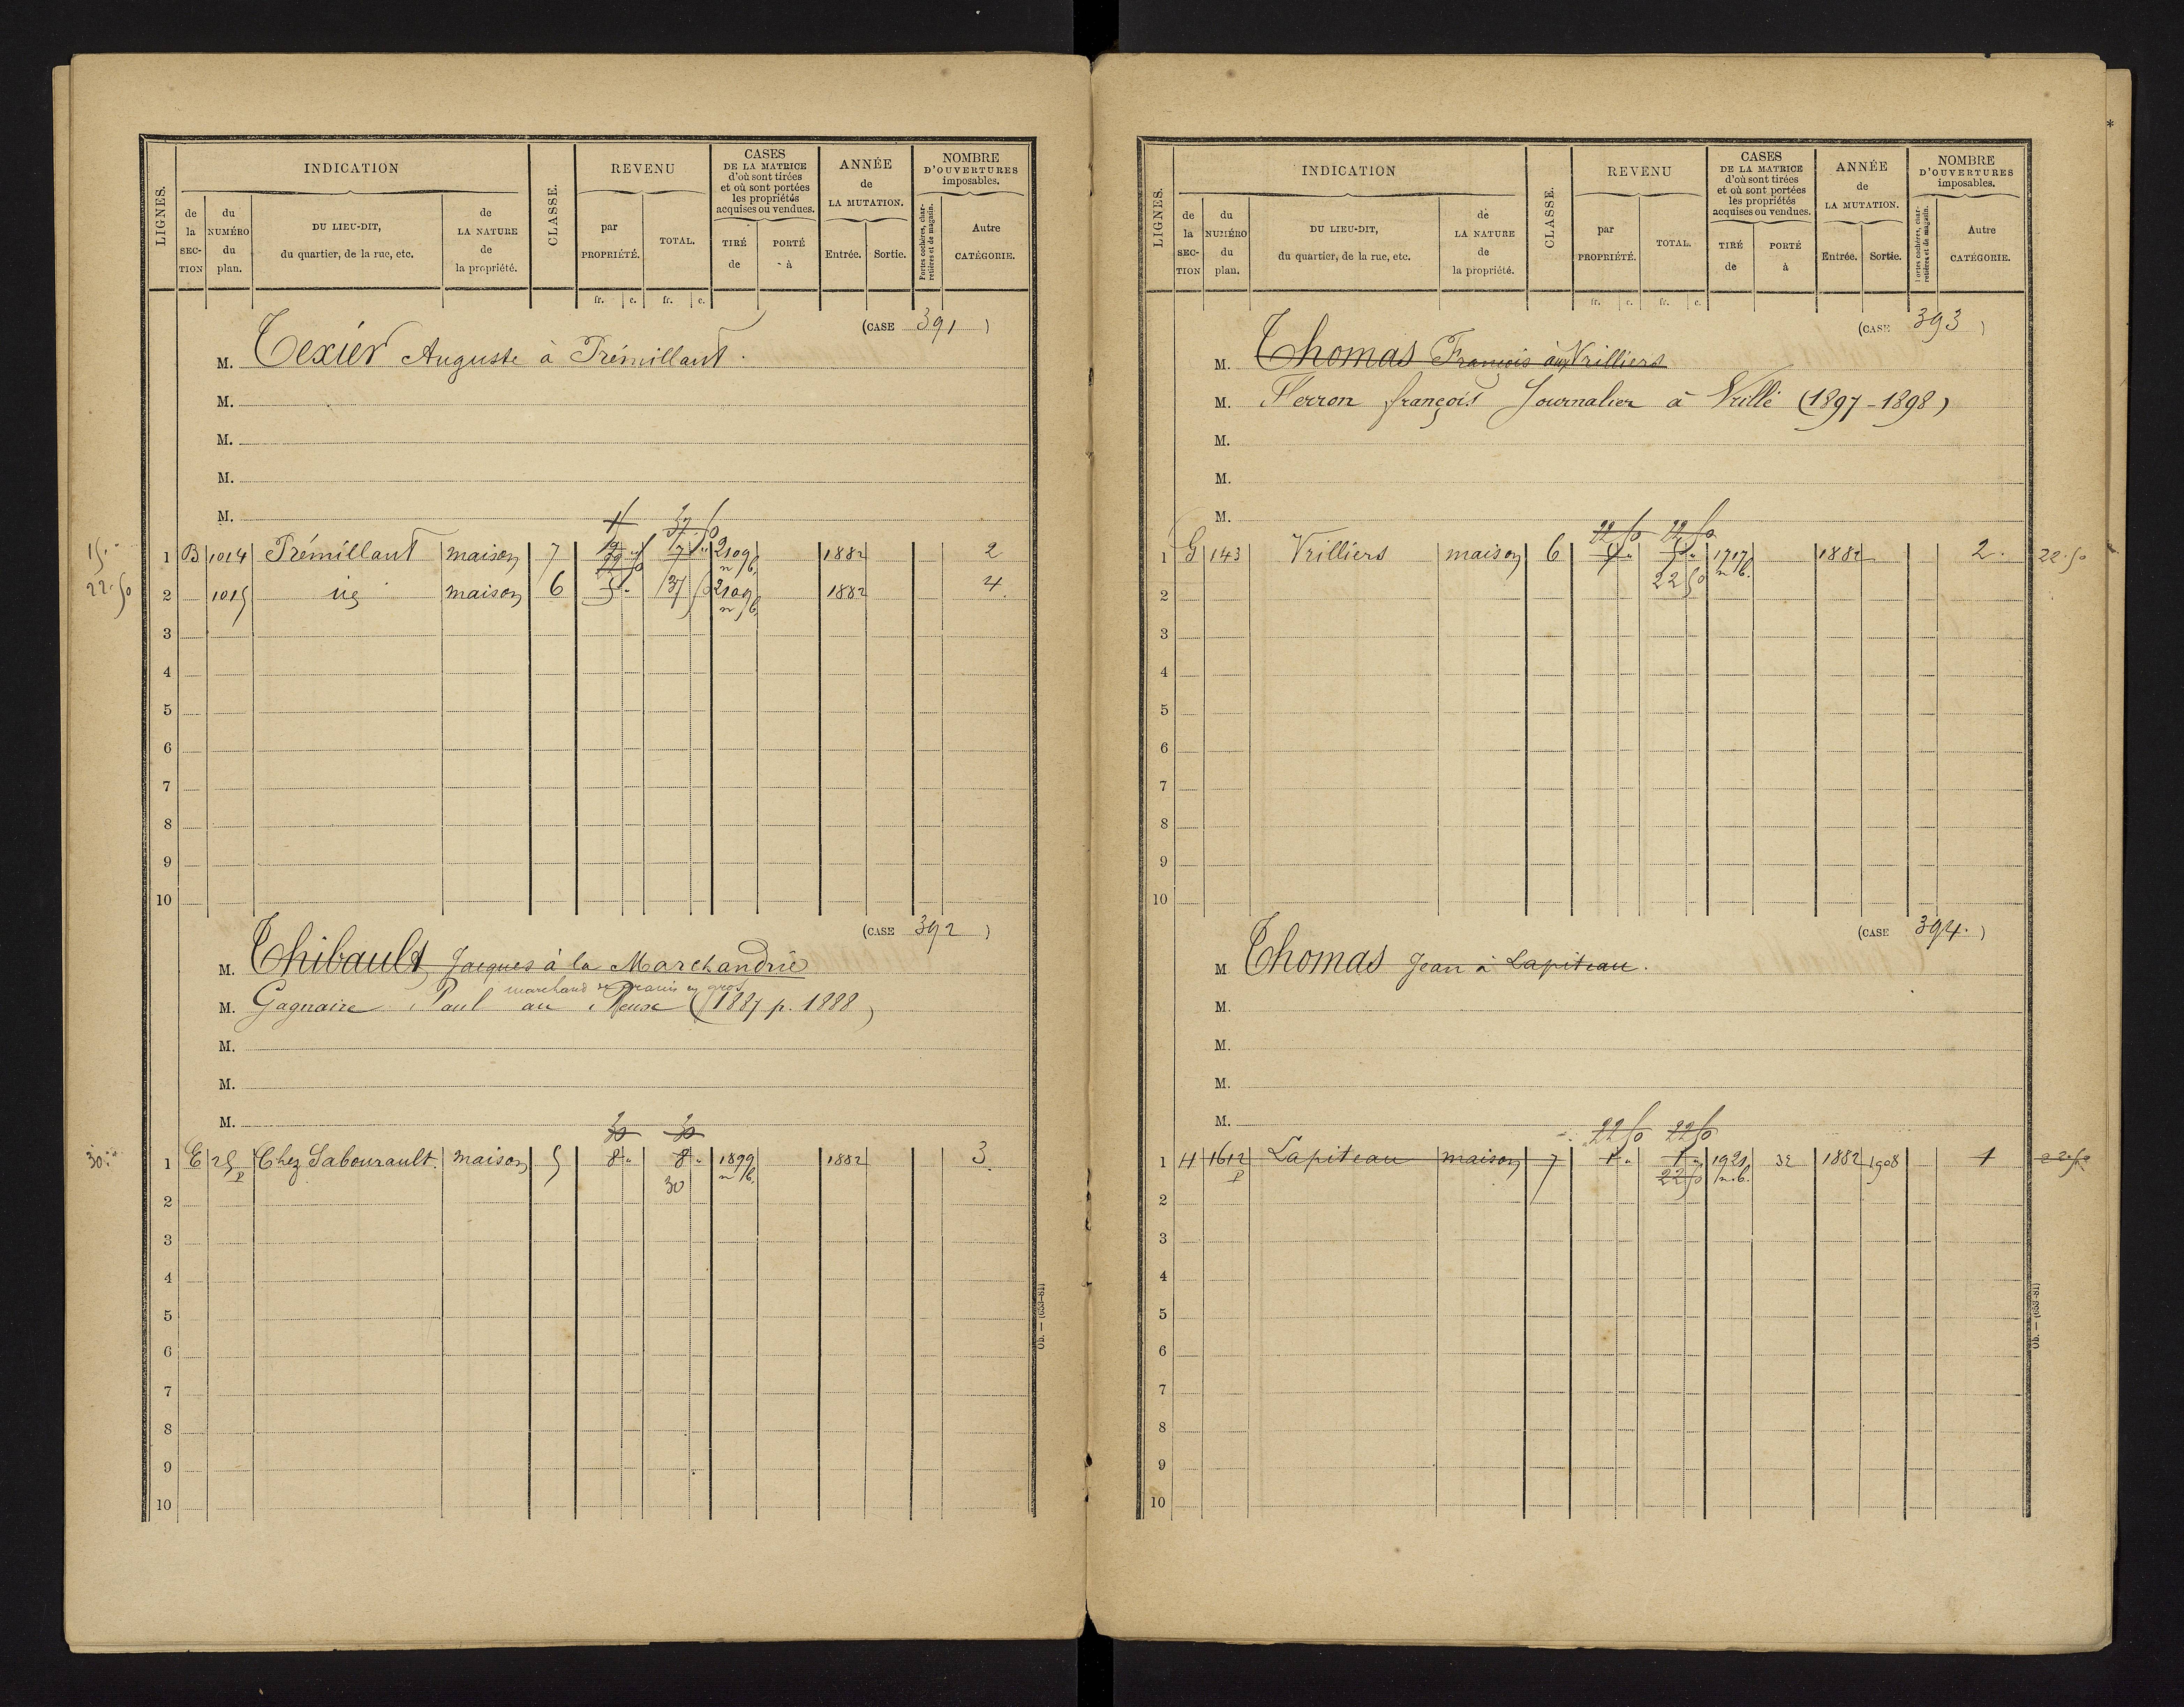 LIGNES. INDICATION CLASSE. REVENU CASES DE LA MATRICE d'où sont tirées et où sont portées les propriétés acquises ou vendues. ANNÉE de LA MUTATION. NOMBRE D'OUVERTURES imposables.
de la SEC-TION du NUMÉRO du plan. DU LIEU-DIT, du quartier, de la rue, etc. de LA NATURE de la propriété. par PROPRIÉTÉ. TOTAL. TIRÉ de PORTÉ à Entrée. Sortie. Portes cochères, charretières et de magasin. Autre CATÉGORIE.
fr. c. fr. c.
(CASE 391)
M. Texier Auguste à Trémillant.
M.
M.
M.
M.
15." 1 B 1014 Trémillant maison 7 2109 n/b. 1882 2
22.50 2 1015 id maison 6 5" 37 50 2109 n/b. 1882 4.
3
4
5
6
7
8
9
10
(CASE 392)
M. Thibault Jacques à la Marchandrie
marchand de grains en gros
M. Gagnaire Paul au (1887 p. 1888)
M.
M.
M.
30 30
30." 1 E 25 p Chez Sabourault. maison 5 8" 8" 1899 n/b. 1882 3.
30
2
3
4
5
6
7
8
9
10
Ob. — (653-81)
LIGNES. INDICATION CLASSE. REVENU CASES DE LA MATRICE d'où sont tirées et où sont portées les propriétés acquises ou vendues. ANNÉE de LA MUTATION. NOMBRE D'OUVERTURES imposables.
de la SEC-TION du NUMÉRO du plan. DU LIEU-DIT, du quartier, de la rue, etc. de LA NATURE de la propriété. par PROPRIÉTÉ. TOTAL. TIRÉ de PORTÉ à Entrée. Sortie. Portes cochères, charretières et de magasin. Autre CATÉGORIE.
fr. c. fr. c.
(CASE 393)
M. Thomas François aux Vrilliers
M. Ferron françois Journalier à Vrillé (1897-1898)
M.
M.
M.
22 50 22 50
1 G 143 Vrilliers maison 6 5" 5" 1717 n/b. 1882 2. 22.50
22 50
2
3
4
5
6
7
8
9
10
(CASE 394.)
M Thomas Jean à Lapiteau.
M.
M.
M.
M.
22 50 22 50
1 H 1612 p Lapiteau maison 7 1" 1" 1921 n.b. 32 1882 1908 1 22.50
22 50
2
3
4
5
6
7
8
9
10
Ob. — (653-81)